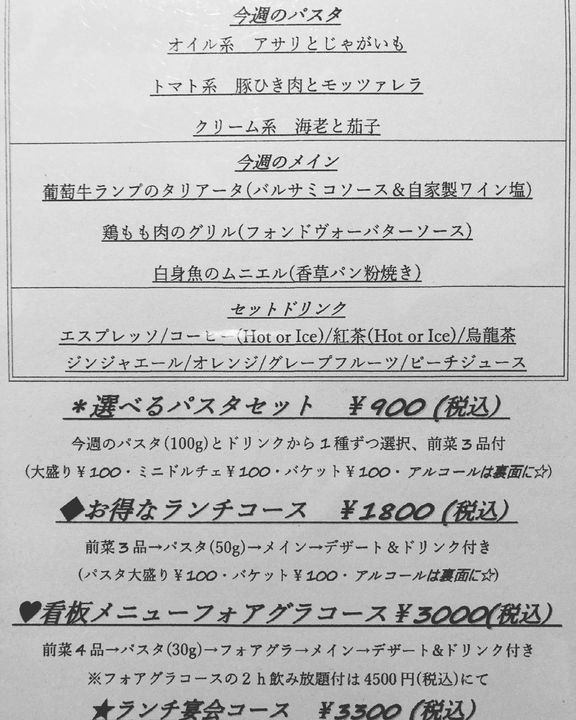 今週のパスタ
オイル系　アサリとじゃがいも
トマト系　豚ひき肉とモッツァレラ
クリーム系　海老と茄子
今週のメイン
葡萄牛ランプのタリアータ(バルサミコソース＆自家製ワイン塩)
鶏もも肉のグリル(フォンドヴォーバターソース)
白身魚のムニエル(香草パン粉焼き)
セットドリンク
エスプレッソ/コーヒー(Hot or Ice)/紅茶(Hot or Ice)/烏龍茶
ジンジャエール/オレンジ/グレープフルーツ/ピーチジュース
＊選べるパスタセット　￥900 (税込)
今週のパスタ(100g)とドリンクから１種ずつ選択、前菜３品付
(大盛り￥100・ミニドルチェ￥100・バケット￥100・アルコールは裏面に☆)
◆お得なランチコース　￥1800 (税込)
前菜３品→パスタ(50g)→メイン→デザート＆ドリンク付き
(パスタ大盛り￥100・バケット￥100・アルコールは裏面に☆)
♥看板メニューフォアグラコース￥3000(税込)
前菜４品→パスタ(30g)→フォアグラ→メイン→デザート&ドリンク付き
※フォアグラコースの２ｈ飲み放題付は 4500 円(税込)にて
★ランチ宴会コース　￥3300 (税込)